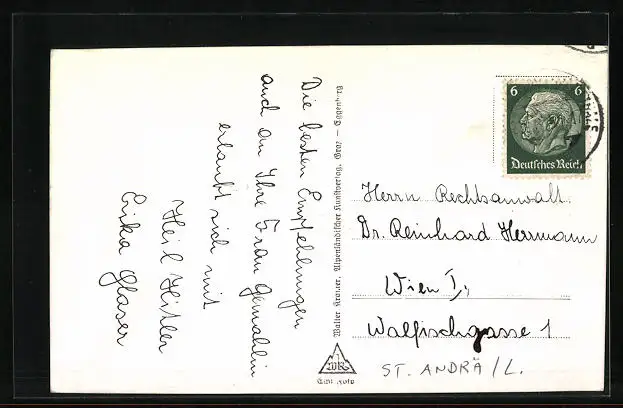 Die besten Empfehlungen
auch an Ihre Frau Gemahlin
erlaubt sich mit
Heil Hitler
Erika Glaser
Walter Kramer, Alpenländischer Kunstverlag, Graz — Eggenberg
WK
Echt Foto
6 6
Deutsches Reich
Herrn Rechtsanwalt
Dr. Reinhard Herrmann
Wien I,
Walfischgasse 1
ST. ANDRÄ/L.